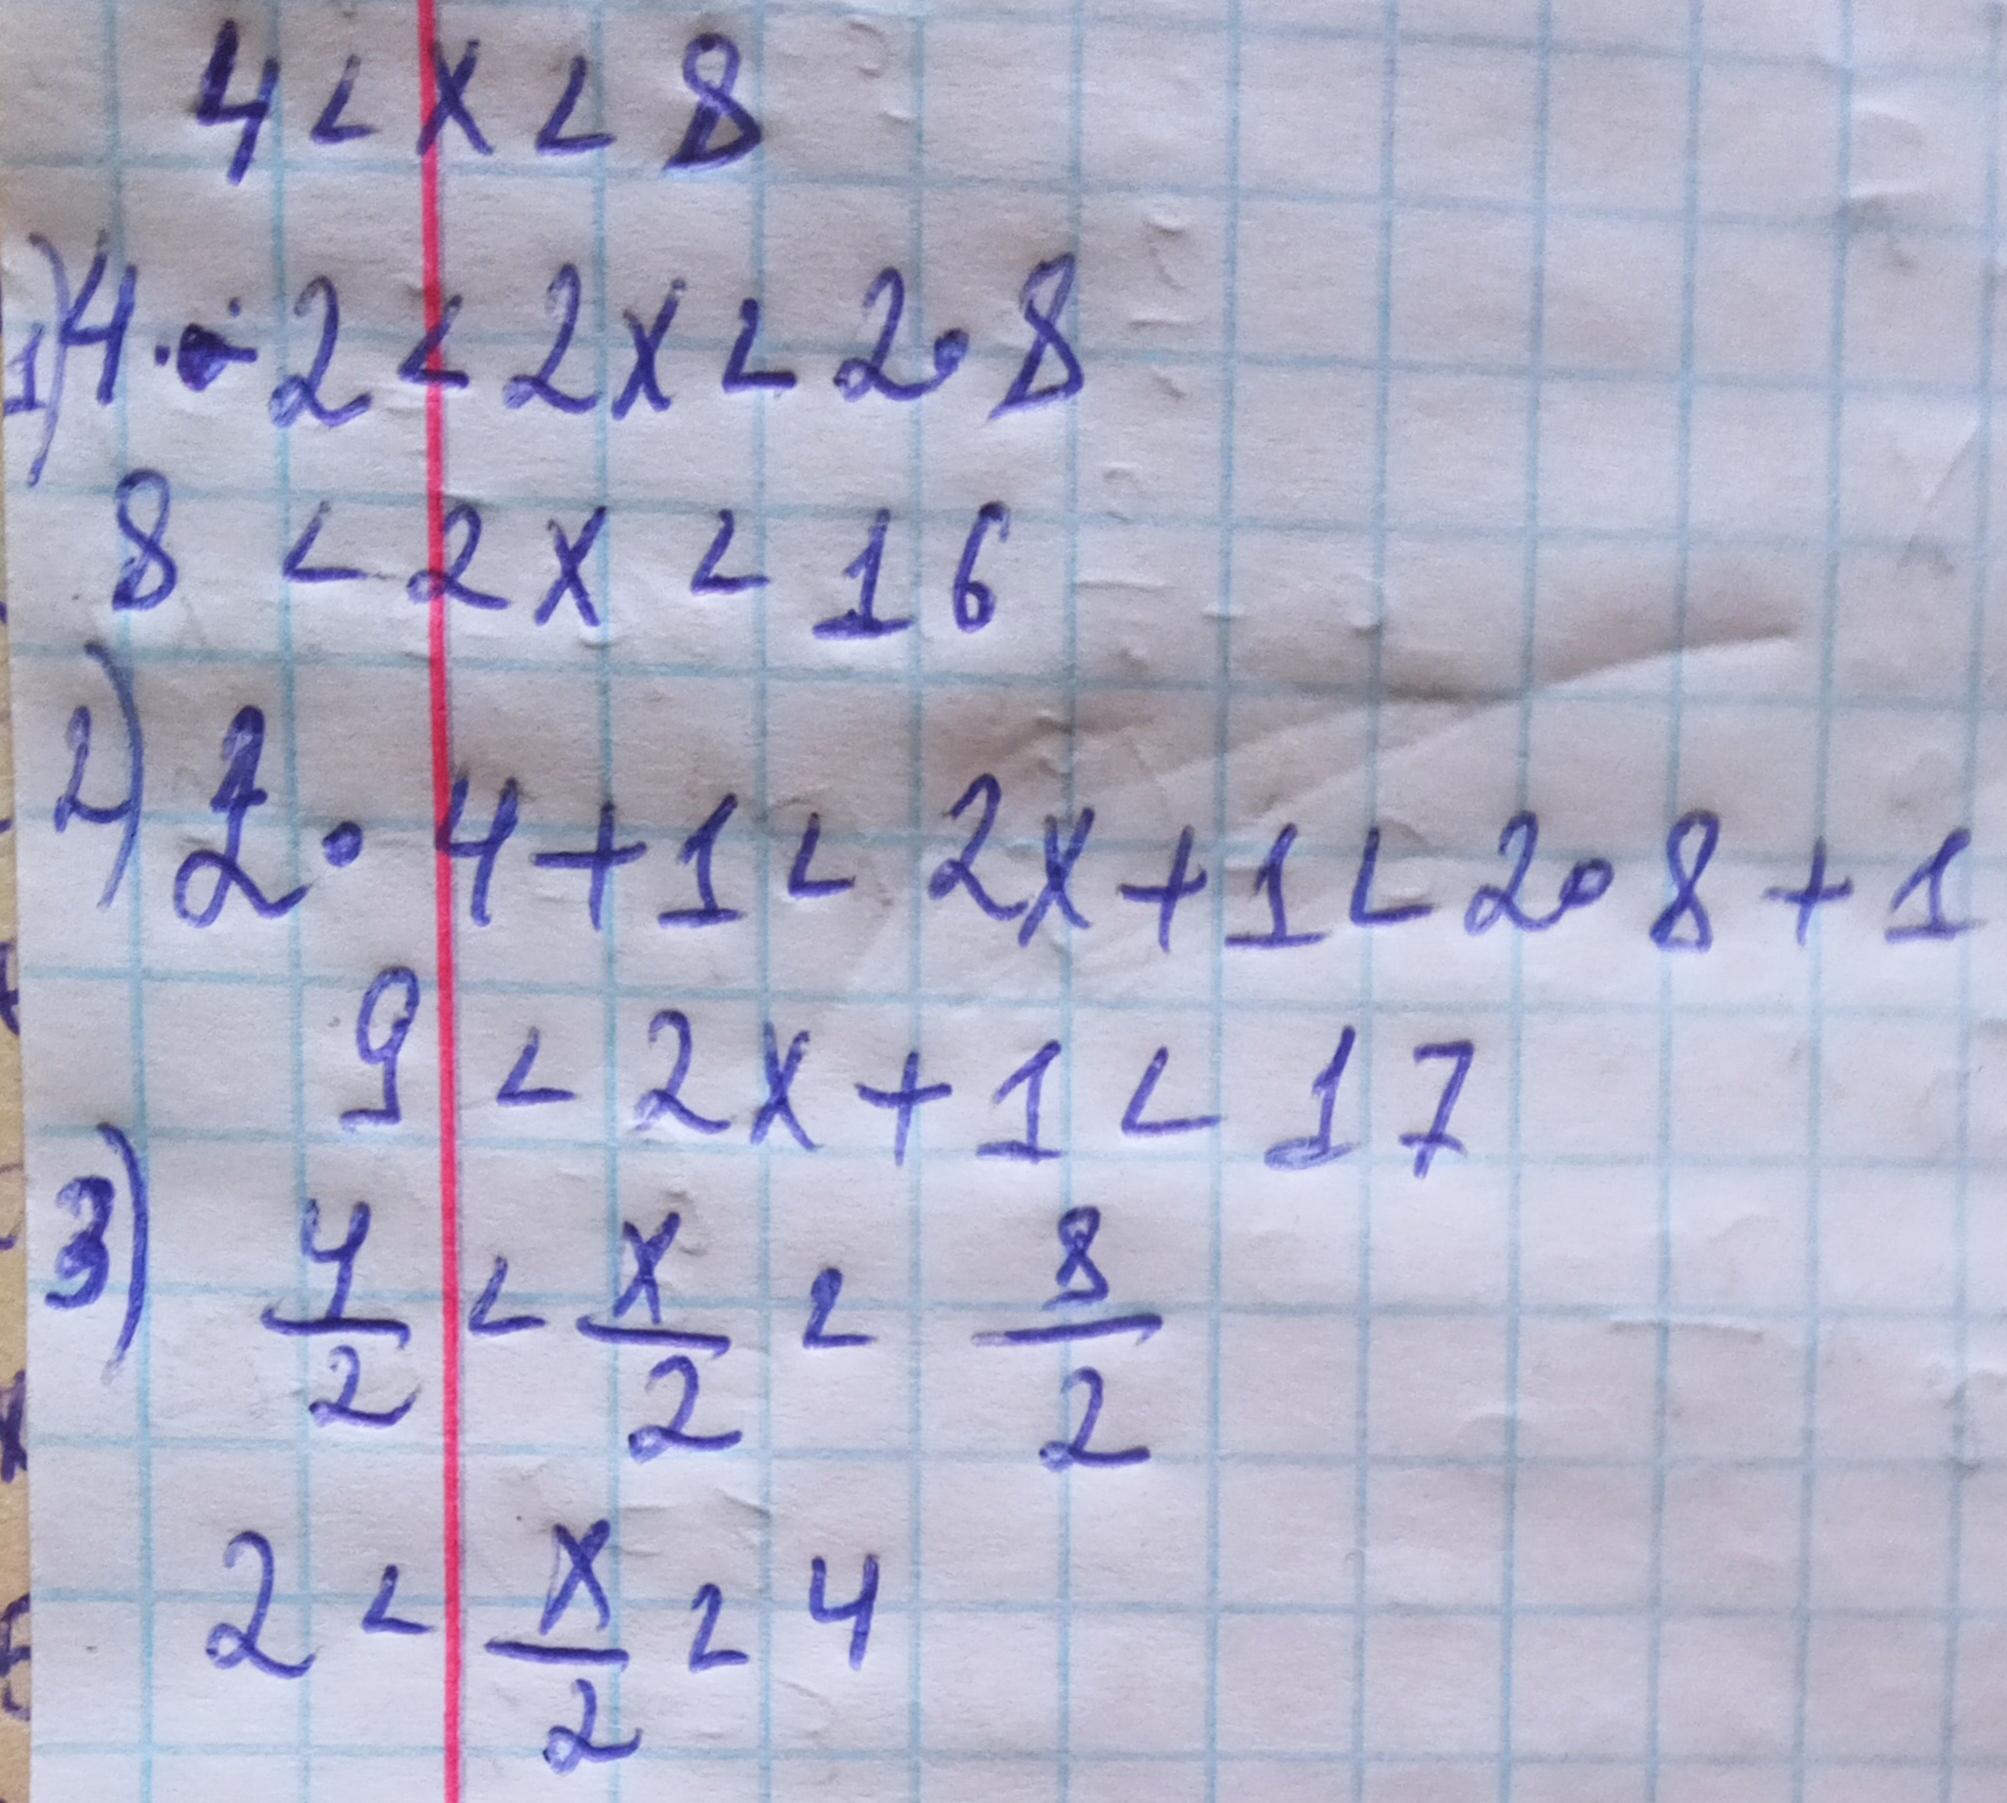 4 < x < 8
1) 4 · 2 < 2x < 2 · 8
8 < 2x < 16
2) 2 · 4 + 1 < 2x + 1 < 2 · 8 + 1
9 < 2x + 1 < 17
3) 4/2 < x/2 < 8/2
2 < x/2 < 4